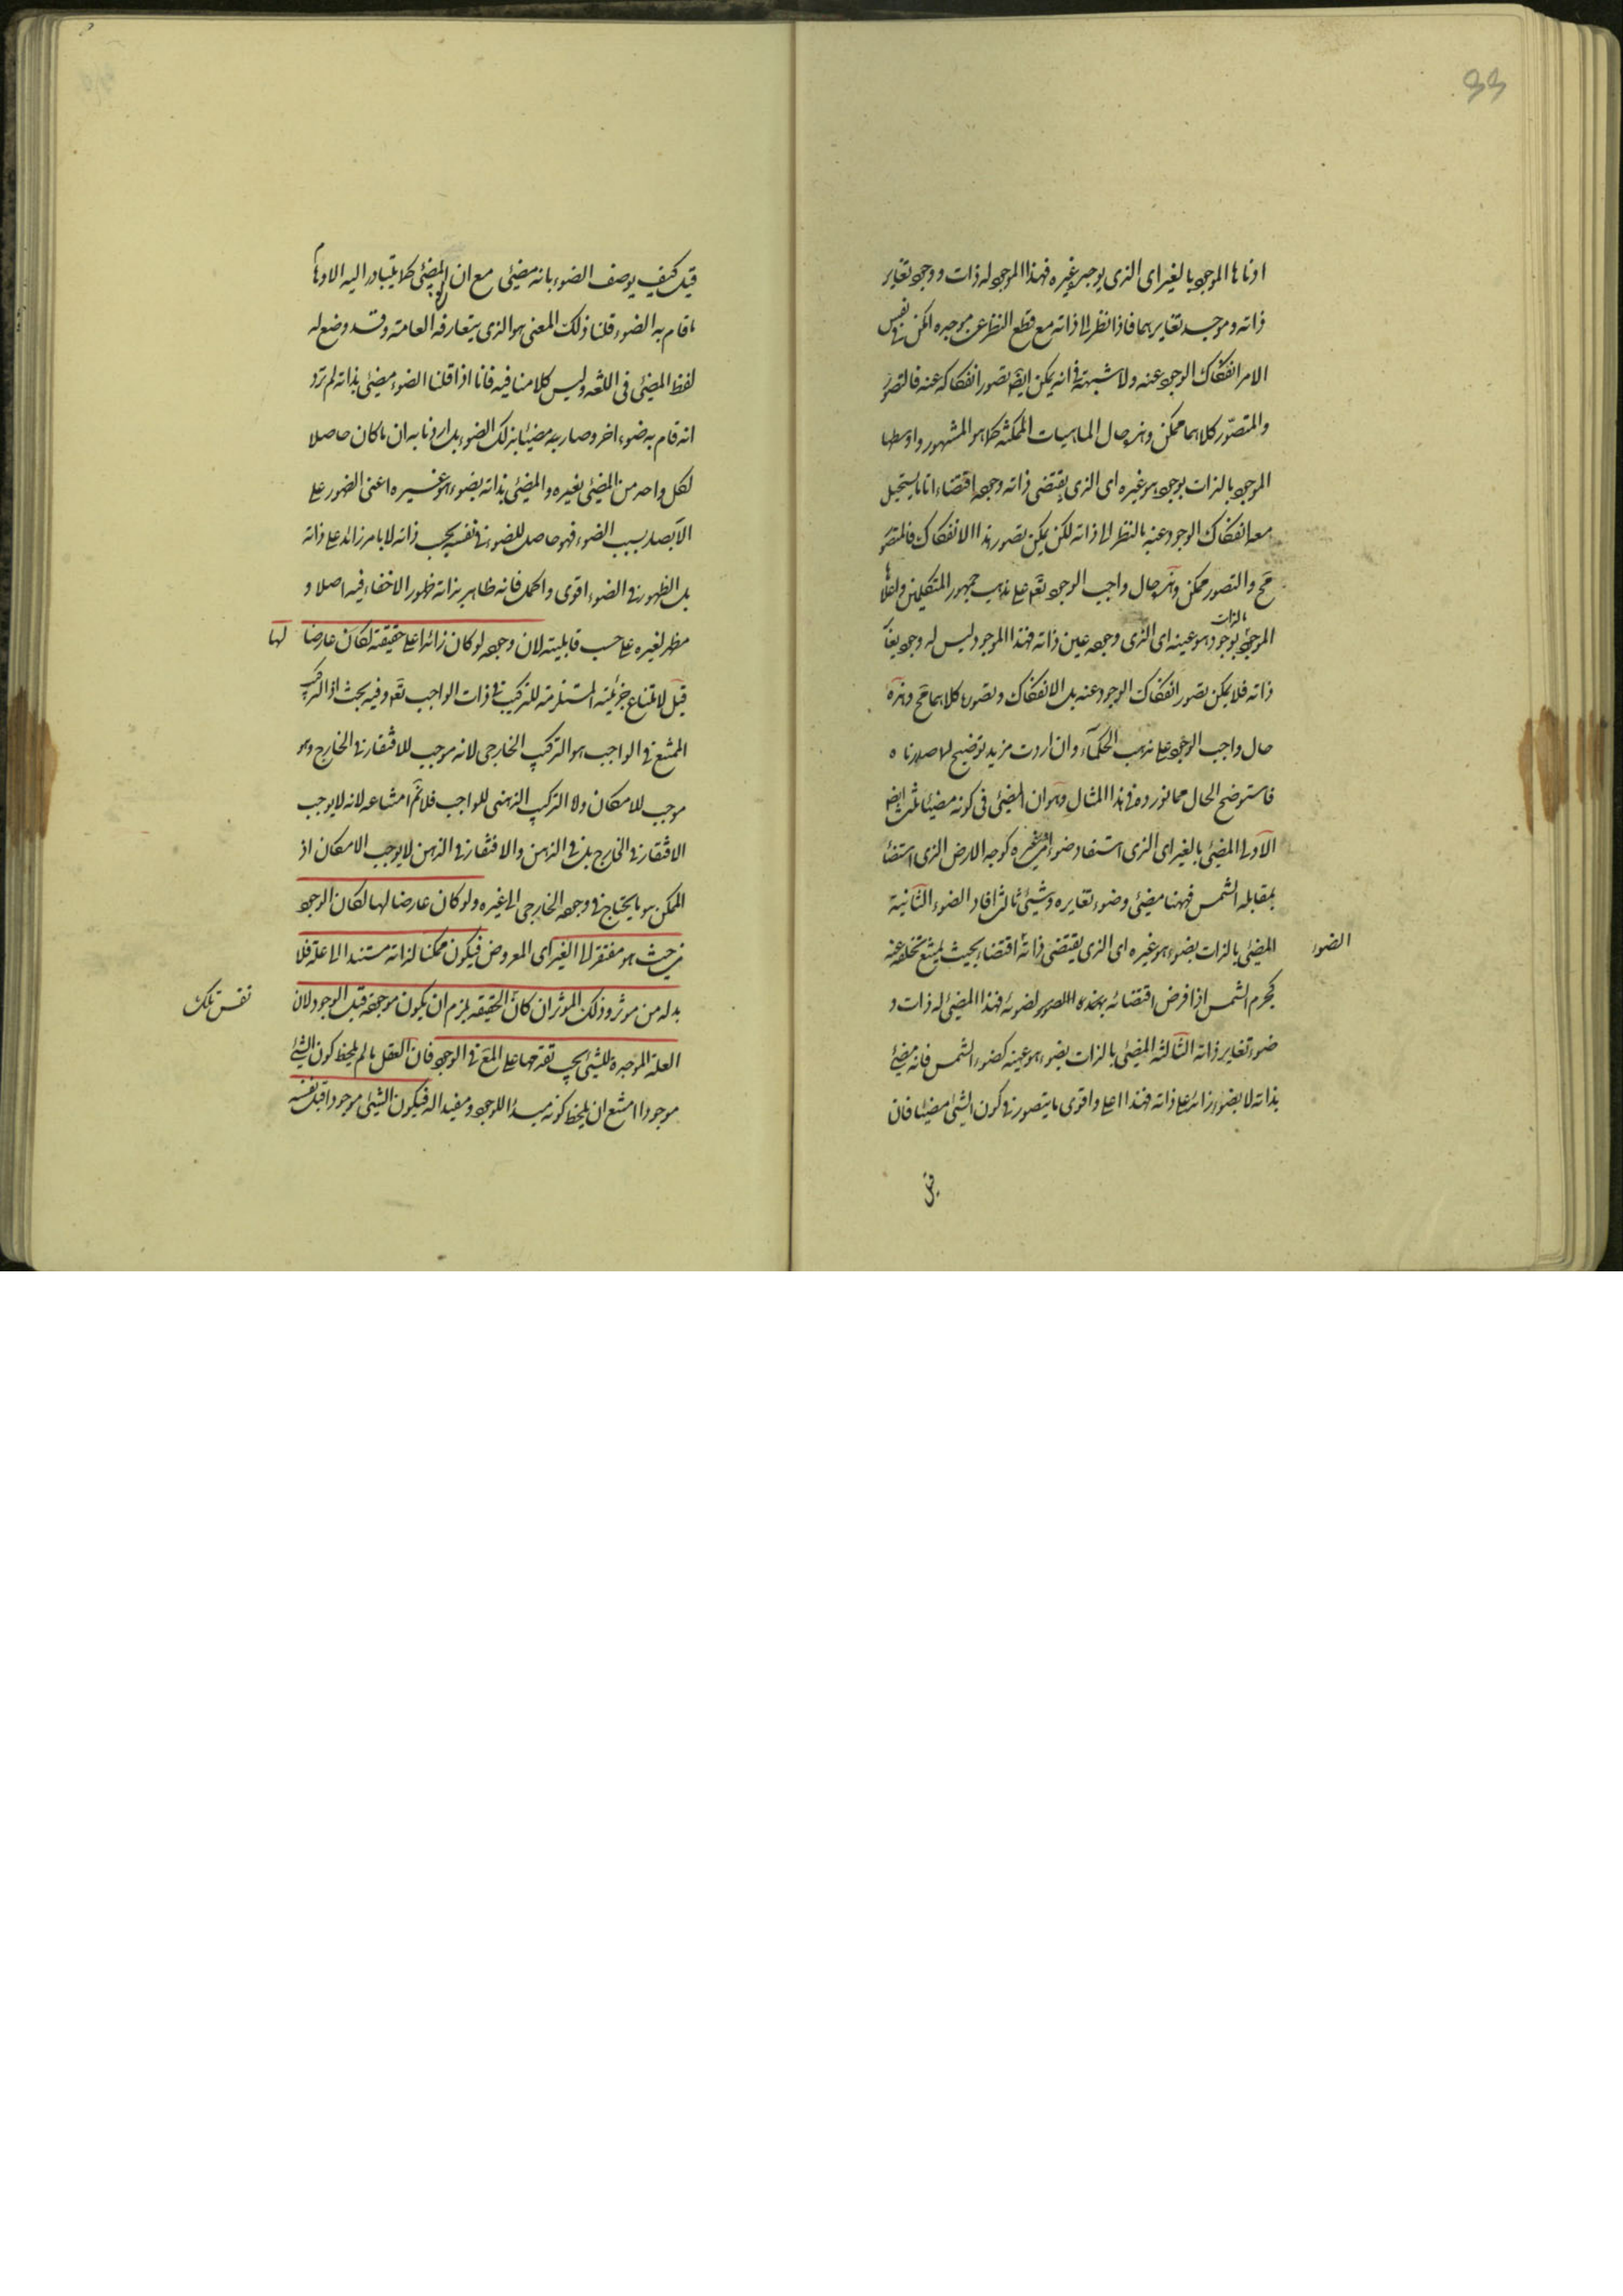 33
ادناها الموجود بالغير اى الذى يوجده غيره فهذا الموجود له ذات و وجود تغاير
ذاته وموجد تغايرهما فاذا نظر الى ذاته مع قطع النظر عن موجده امكن فى نفس
الامر انفكاك الوجود عنه ولا شبهة فى انه يمكن ايضا تصور انفكاكه عنه فالتصور
والمتصور كلاهما ممكن وهذه حال الماهيات الممكنة كما هو المشهور واوسطها
الموجود بالذات بوجود هو غيره اى الذى يقتضى ذاته وجوده اقتضاء تاما يستحيل
معه انفكاك الوجود عنه بالنظر الى ذاته لكن يمكن تصور هذا الانفكاك فالمتصور
مح والتصور ممكن وهذه حال واجب الوجود تع على مذهب جمهور المتكلمين واعلاها
الموجود بالذات بوجود هو عينه اى الذى وجوده عين ذاته فهذا الموجود ليس له وجود يغاير
ذاته فلا يمكن تصور انفكاك الوجود عنه بل الانفكاك وتصوره كلاهما مح وهذه
حال واجب الوجود على مذهب الحكماء وان اردت مزيد توضيح لما صدرناه
فاستوضح الحال مما نورده فى هذا المثال وهو ان المضئ فى كونه مضيئا ثلث ايضا
الاولى المضئ بالغير اى الذى استفاد ضوءه من غيره كوجه الارض الذى استضاء
بمقابلة الشمس فهنا مضئ وضوء تغايره وشيئ ثالث افاد الضوء الثانية
المضئ بالذات بضوء هو غيره اى الذى يقتضى ذاته اقتضاء بحيث يمتنع تخلفه عنه
الضوء
كجرم الشمس اذا فرض اقتضائه بهذه لضوئه فهذا المضئ له ذات و
ضوء تغاير ذاته الثالثة المضئ بالذات بضوء هو عينه كضوء الشمس فانه مضئ
بذاته لا بضوء زائد على ذاته فهذا اعلى واقوى ما يتصور فى كون الشئ مضيئا فان
قيل
قيل كيف يوصف الضوء بانه مضئ مع ان المضئ كما يتبادر اليه الاوهام
ما قام به الضوء قلنا ذلك المعنى هو الذى يتعارفه العامة وقد وضع له
لفظ المضئ فى اللغة وليس كلامنا فيه فانا اذا قلنا الضوء مضئ بذاته لم نرد
انه قام به ضوء اخر وصار به مضيئا بذلك الضوء بل اردنا به ان ما كان حاصلا
لكل واحد من المضئ بغيره والمضئ بذاته بضوء هو غيره اعنى الظهور على
الابصار بسبب الضوء فهو حاصل للضوء فى نفسه بحسب ذاته لا بامر زائد على ذاته
بل الظهور فى الضوء اقوى واكمل فانه ظاهر بذاته ظهورا لا خفاء فيه اصلا و
مظهر لغيره على حسب قابليته لان وجوده لو كان زائدا على حقيقته لكان عارضا لها
قيل لامتناع جزئيته المستلزمة للتركيب فى ذات الواجب تع وفيه بحث اذ التركيب
الممتنع فى الواجب هو التركيب الخارجى لانه موجب للافتقار فى الخارج وهو
موجب للامكان ولا التركيب الذهنى للواجب فلا نم امتناعه لانه لا يوجب
الافتقار فى الخارج بل فى الذهن والافتقار فى الذهن لا يوجب الامكان اذ
الممكن هو ما يحتاج فى وجوده الخارجى الى غيره ولو كان عارضا لها لكان الوجود
من حيث هو مفتقر الى الغير اى المعروض فيكون ممكنا لذاته مستندا الى علة فلا
بد له من موثر وذلك الموثر ان كان الحقيقة يلزم ان يكون موجودة قبل الوجود لان
نفس تلك
العلة الموجدة للشئ يجب تقدمها على المع فى الوجود فان العقل ما لم يلحظ كون الشئ
موجودا امتنع ان يلحظ كونه مبدأ للوجود ومفيدا له فيكون الشئ موجودا قبل نفسه